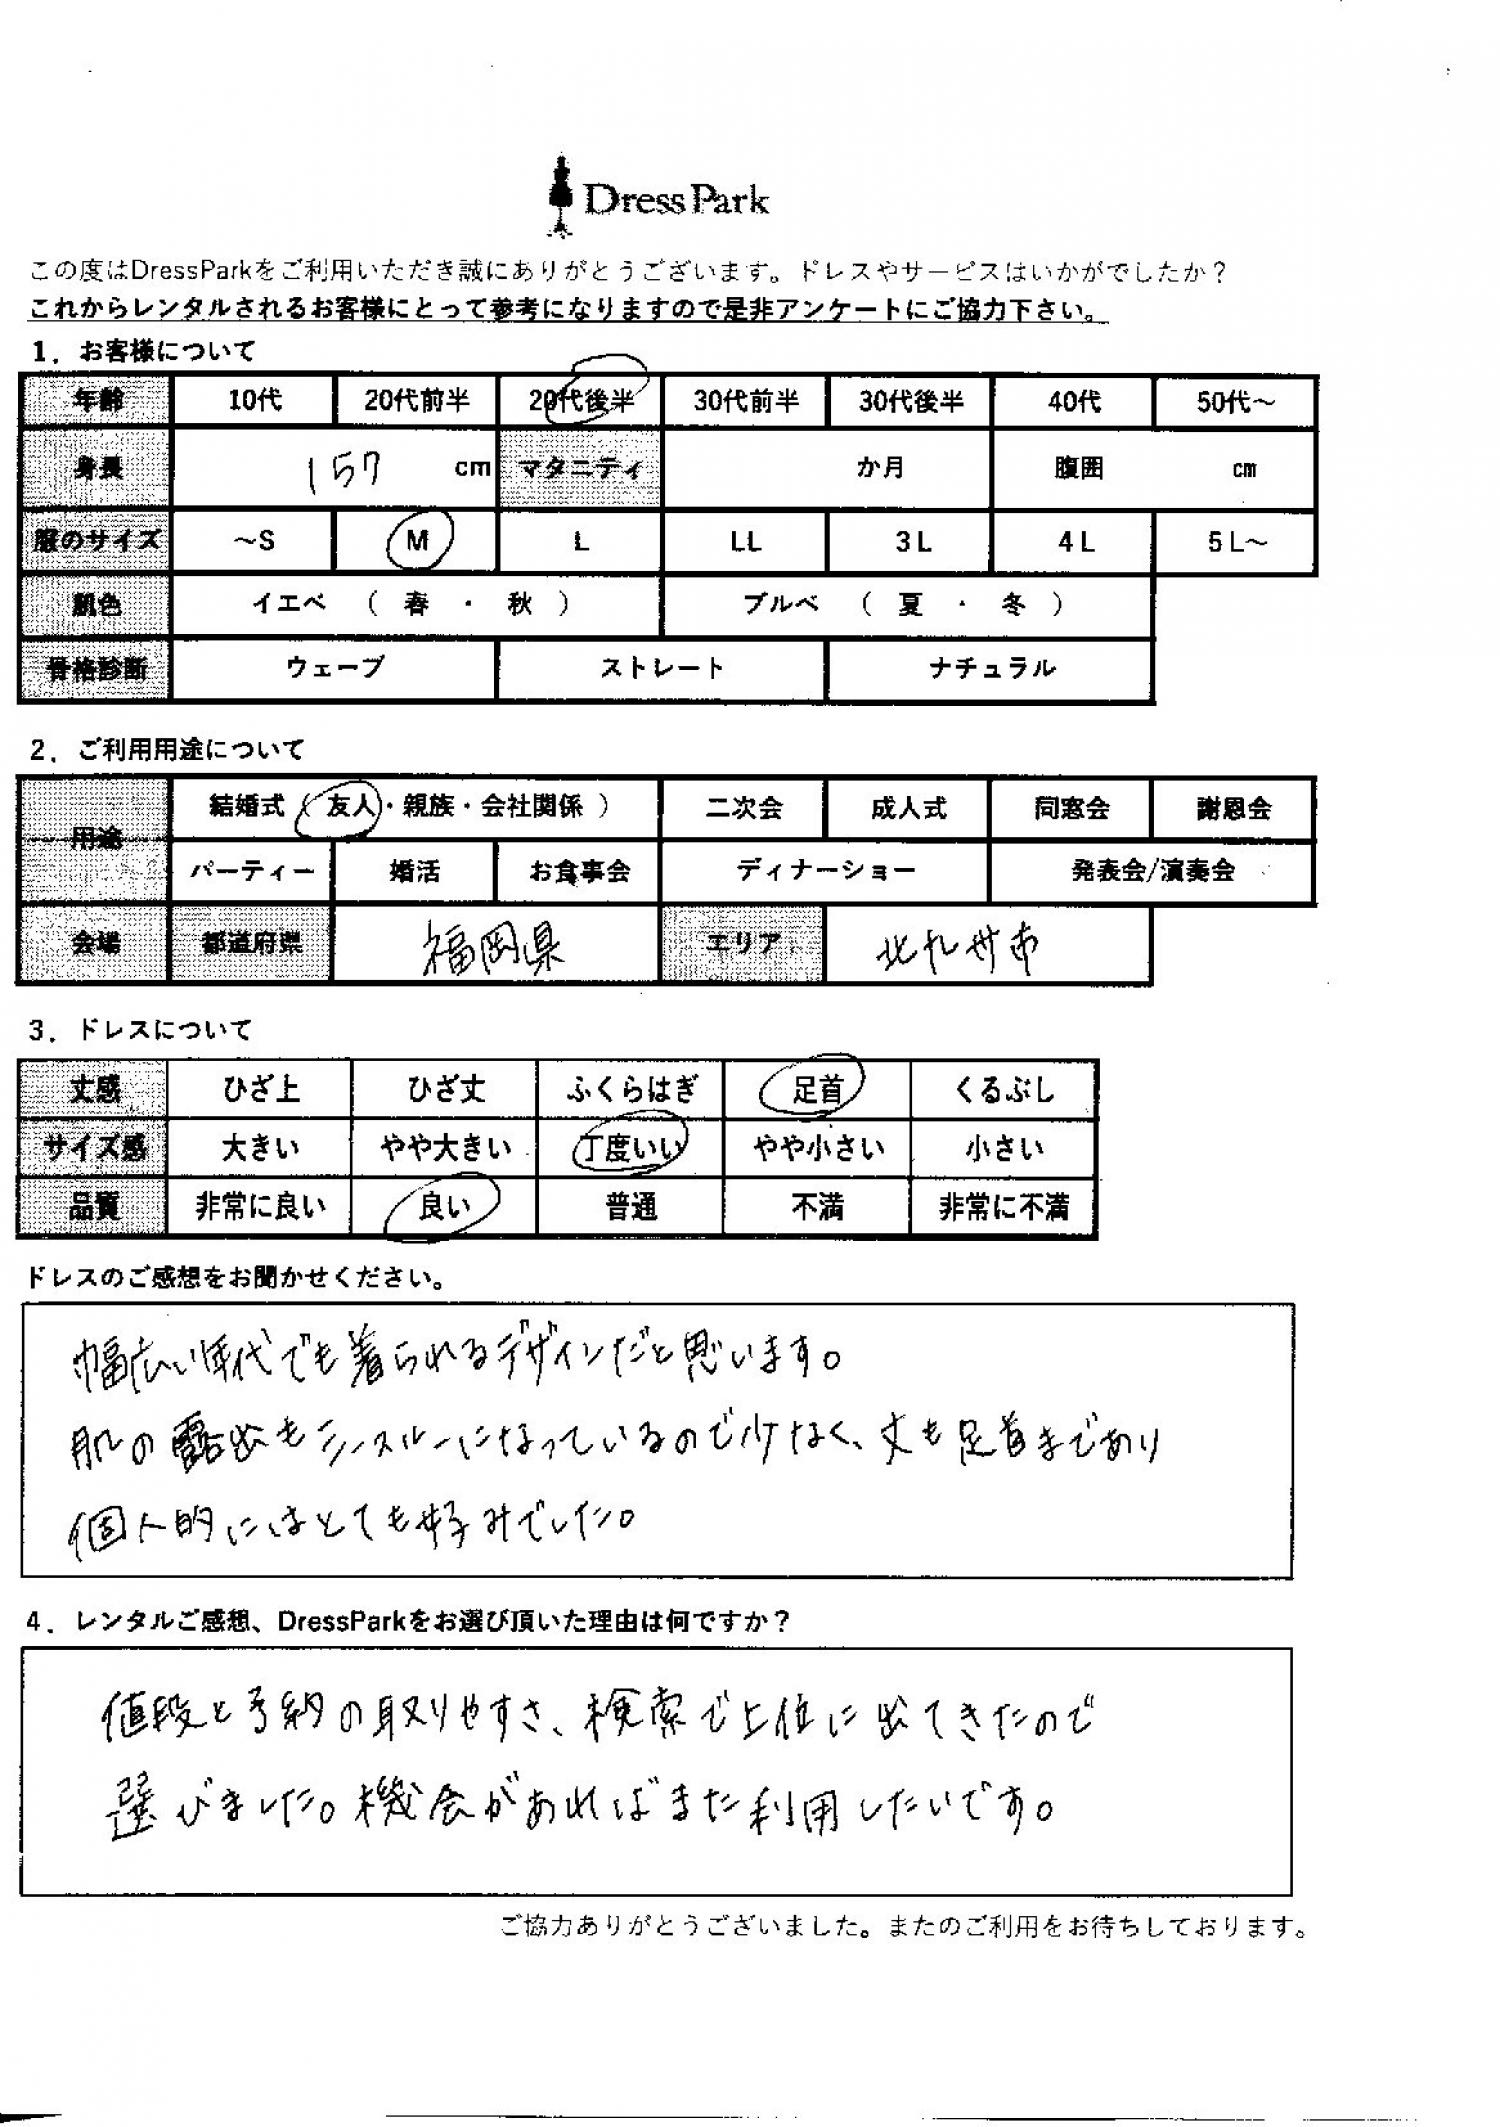 DressPark
この度はDressParkをご利用いただき誠にありがとうございます。ドレスやサービスはいかがでしたか？
これからレンタルされるお客様にとって参考になりますので是非アンケートにご協力下さい。
1．お客様について
年齢 10代 20代前半 20代後半 30代前半 30代後半 40代 50代～
身長 157 cm マタニティ か月 腹囲 cm
服のサイズ ～S M L LL 3L 4L 5L～
肌色 イエベ （ 春 ・ 秋 ） ブルベ （ 夏 ・ 冬 ）
骨格診断 ウェーブ ストレート ナチュラル
2．ご利用用途について
用途 結婚式（ 友人・親族・会社関係 ） 二次会 成人式 同窓会 謝恩会
パーティー 婚活 お食事会 ディナーショー 発表会/演奏会
会場 都道府県 福岡県 エリア 北九州市
3．ドレスについて
丈感 ひざ上 ひざ丈 ふくらはぎ 足首 くるぶし
サイズ感 大きい やや大きい 丁度いい やや小さい 小さい
品質 非常に良い 良い 普通 不満 非常に不満
ドレスのご感想をお聞かせください。
幅広い年代でも着られるデザインだと思います。
肌の露出もシースルーになっているので少なく、丈も足首まであり
個人的にはとても好みでした。
4．レンタルご感想、DressParkをお選び頂いた理由は何ですか？
値段と予約の取りやすさ、検索で上位に出てきたので
選びました。機会があればまた利用したいです。
ご協力ありがとうございました。またのご利用をお待ちしております。